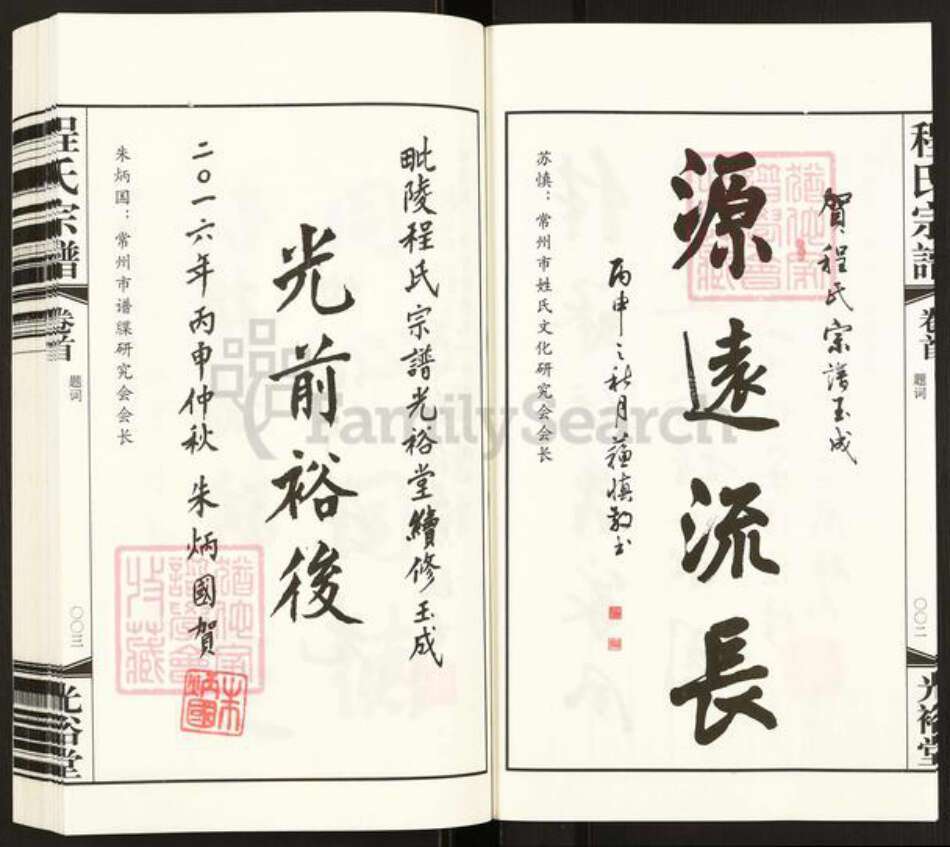 程氏宗譜
卷首
题词
〇〇二
光裕堂
賀程氏宗譜玉成
源遠流長
丙申之秋月蘇慎敬書
苏慎：常州市姓氏文化研究会会长
毗陵程氏宗譜光裕堂續修玉成
光前裕後
二〇一六年丙申仲秋 朱炳國賀
朱炳国
朱炳国：常州市谱牒研究会会长
程氏宗譜
卷首
题词
〇〇三
光裕堂
FamilySearch